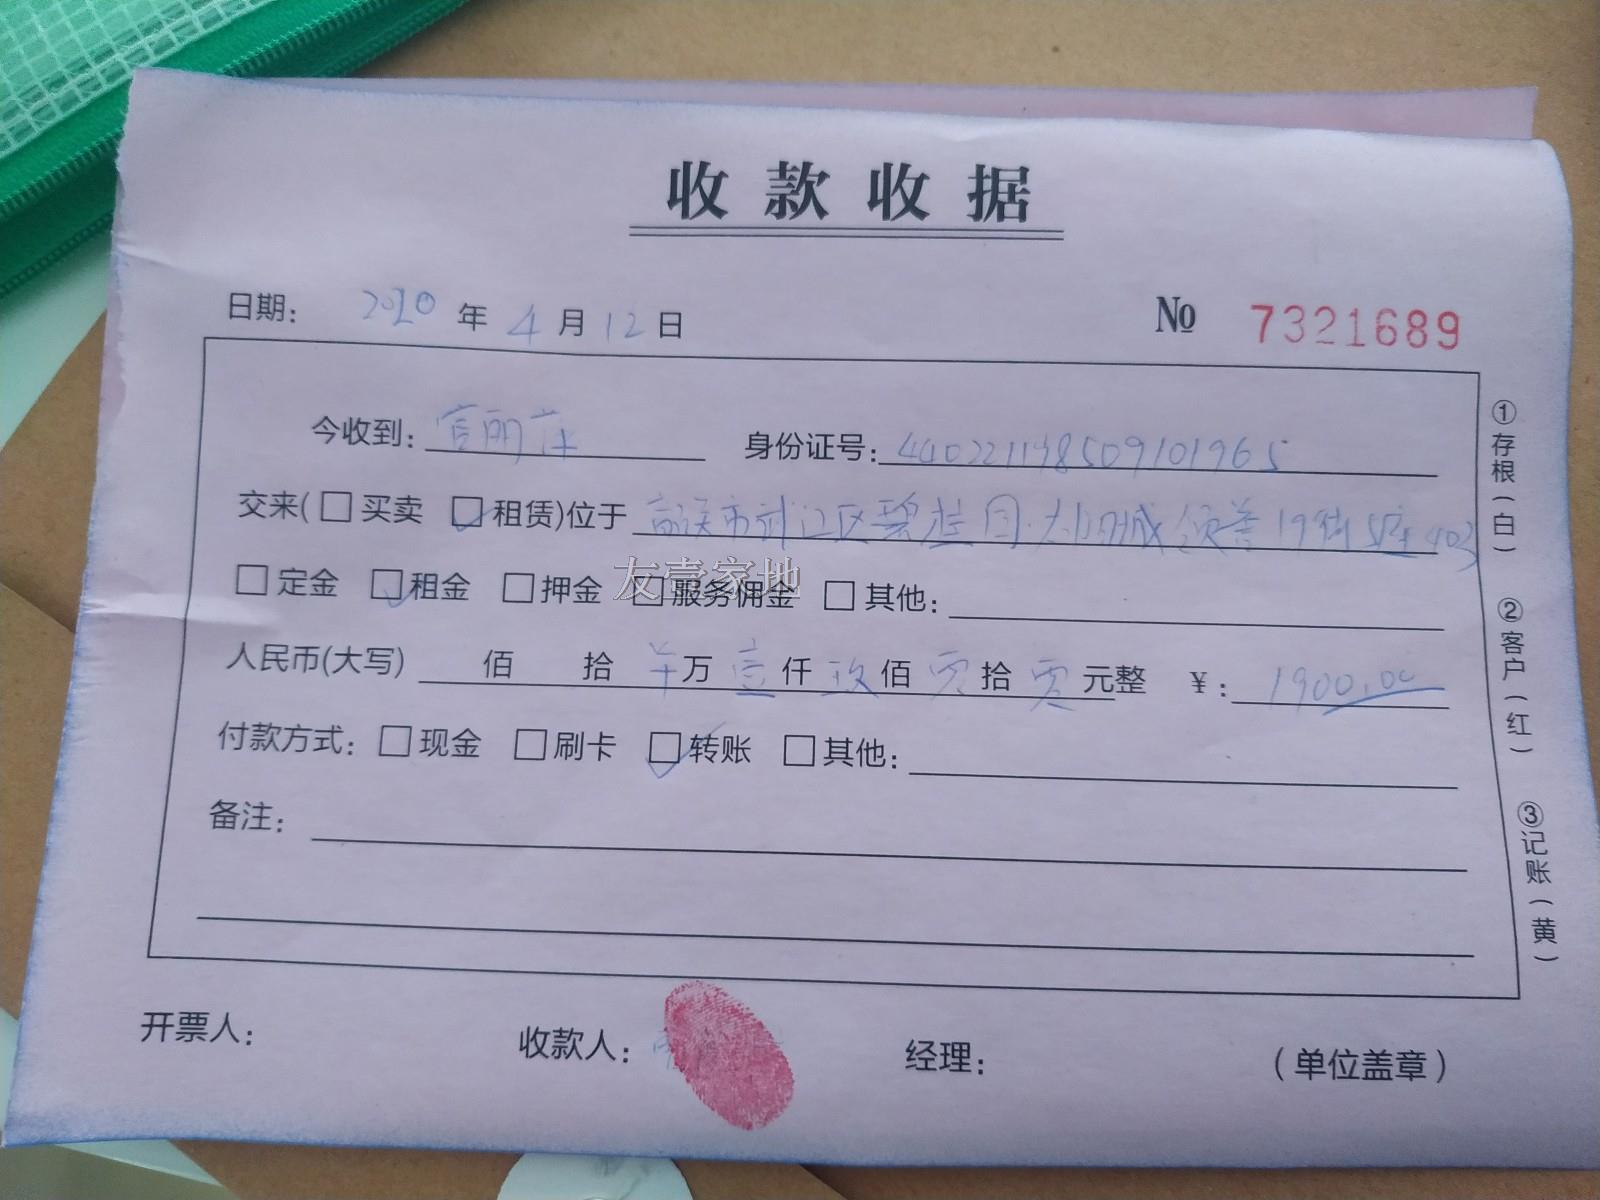 收款收据
日期: 2020 年 4 月 12 日 № 7321689
今收到: 官丽萍 身份证号: 440221198509101965
交来( □买卖 ☑租赁)位于 市武江区碧桂园·太阳城 19街5座403
□定金 ☑租金 □押金 □服务佣金 □其他:
友壹家地
人民币(大写) 佰 拾 万 壹仟 玖佰 零拾 零元整 ¥: 1900.00
付款方式: □现金 □刷卡 ☑转账 □其他:
备注:
开票人: 收款人: 经理: (单位盖章)
①存根(白) ②客户(红) ③记账(黄)